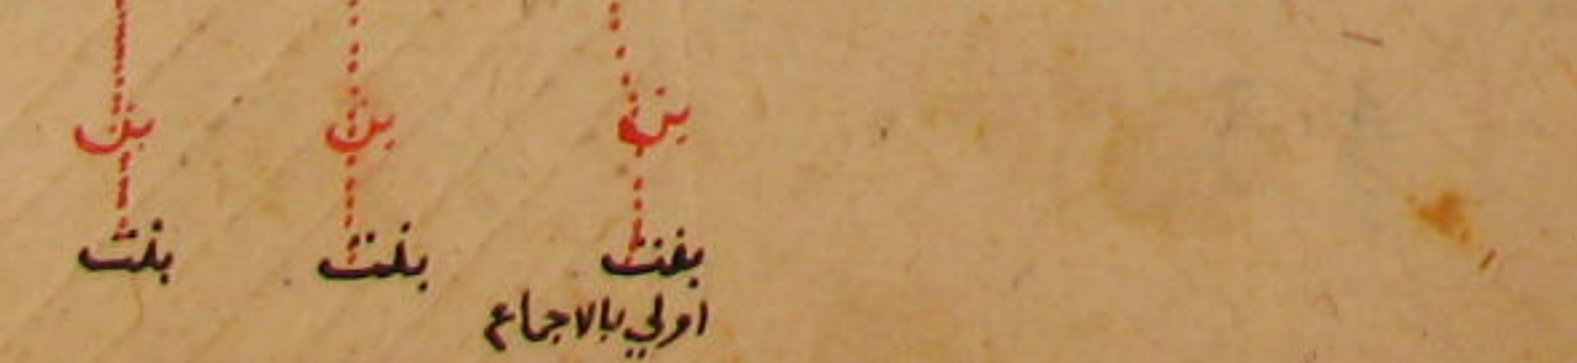 بن بن بن
بنت بنت بنت
اولي بالاجماع